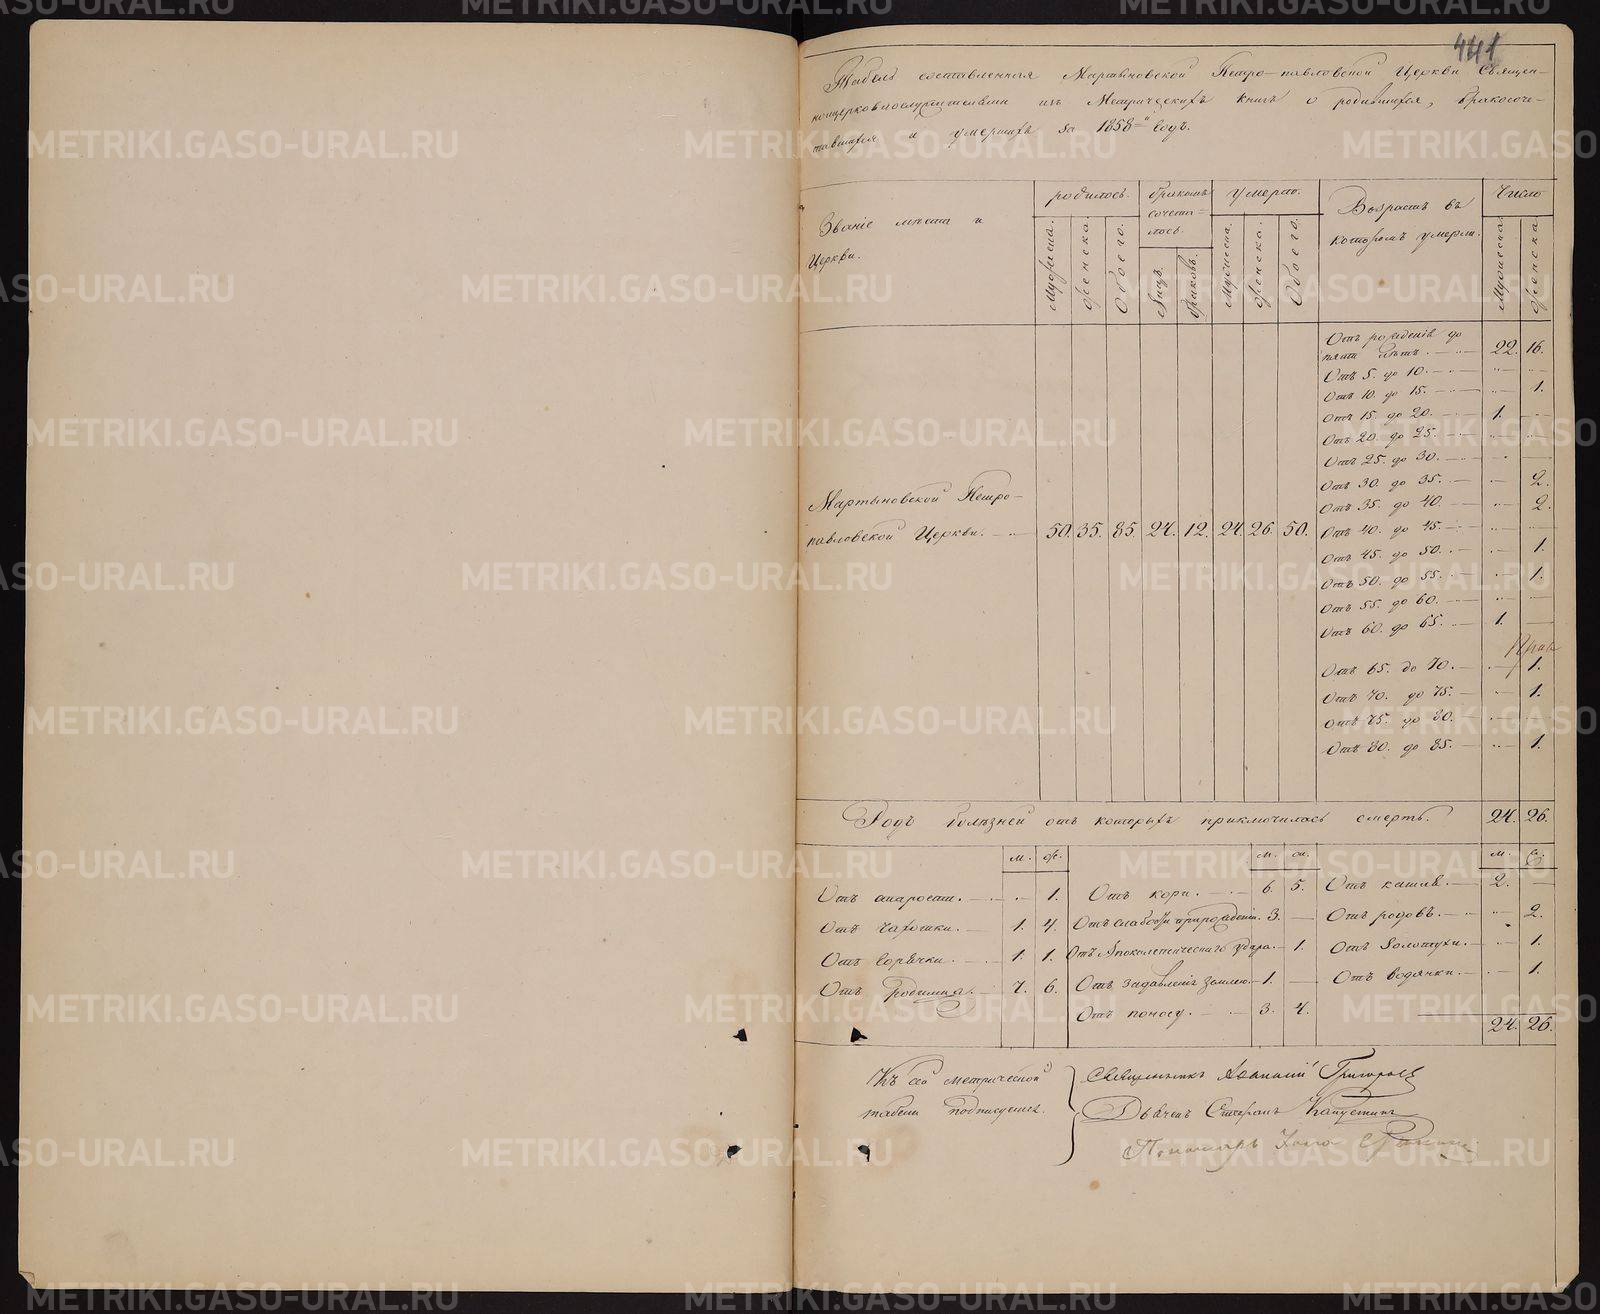 441
Табель составленная Мартыновской Петро-павловской Церкви Священ-
ноцерковнослужителями изъ Метрическихъ книгъ о родившихся, бракосоче-
тавшихся и умершихъ за 1858-й годъ.
Званіе мѣста и Церкви.
родилось.
бракомъ сочета=лось.
умерло.
Возрастъ въ которомъ умерли.
Число
Мужеска.
Женска.
Обоего.
Лицъ.
Браковъ.
Мужеска.
Женска.
Обоего.
Мужеска.
Женска.
Отъ рожденія до
пяти лѣтъ. 22. 16.
Отъ 5. до 10.
Отъ 10. до 15. 1.
Отъ 15. до 20. 1.
Отъ 20. до 25.
Отъ 25. до 30.
Отъ 30. до 35. 2.
Отъ 35. до 40. 2.
Мартыновской Петро-
павловской Церкви. 50. 35. 85. 24. 12. 24. 26. 50.
Отъ 40. до 45.
Отъ 45. до 50. 1.
Отъ 50. до 55. 1.
Отъ 55. до 60.
Отъ 60. до 65. 1.
Отъ 65. до 70. 1.
Отъ 70. до 75. 1.
Отъ 75. до 80.
Отъ 80. до 85. 1.
Родъ болѣзней отъ которыхъ приключилась смерть. 24. 26.
м. ж. м. ж. м. ж.
Отъ старости. 1. Отъ кори. 6. 5. Отъ кашля. 2.
Отъ чахотки. 1. 4. Отъ слабости при рожденіи. 3. Отъ родовъ. 2.
Отъ горячки. 1. 1. Отъ Апоплексическаго удара. 1. Отъ золотухи. 1.
Отъ родимца. 7. 6. Отъ задавленія землею. 1. Отъ водянки. 1.
Отъ поносу. 3. 4.
24. 26.
Къ сей метрической
табели подписуемся.
Священникъ Афанасій Григорьевъ
Дьяченъ Стефанъ Капустинъ
Пономарь
METRIKI.GASO-URAL.RU